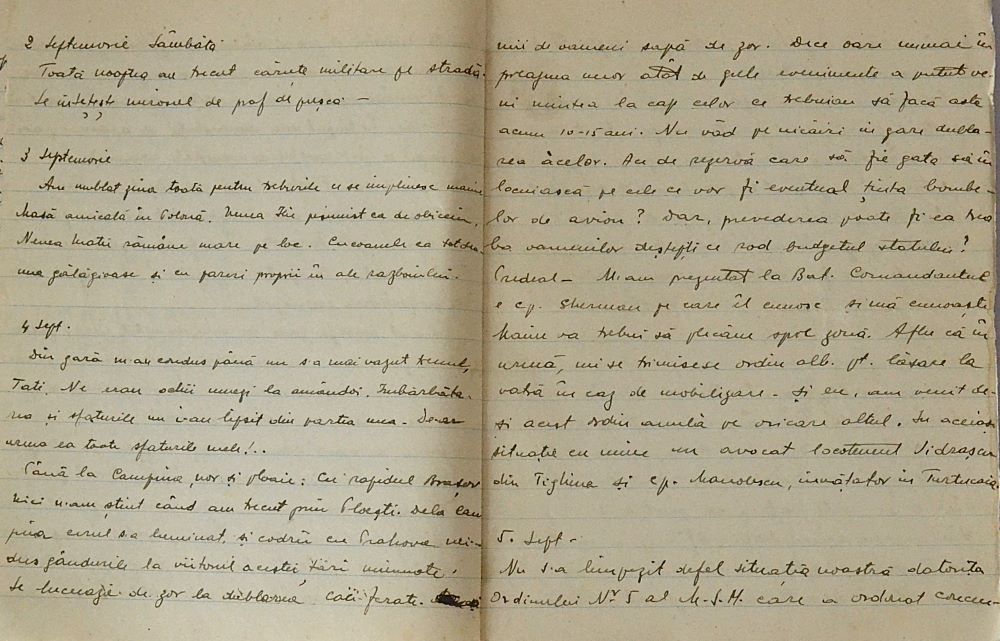 2 Septemvrie Sâmbătă
Toată noaptea au trecut căruțe militare pe stradă.
Se însetește mirosul de praf de pușcă. —
3 Septemvrie
Am umblat ziua toată pentru treburile ce se împlinesc maine
Masă amicală în Polonă. Nenea Ilie pesimist ca de obiceiu.
Nenea Matei rămâne mare pe loc. Cucoanele ca totdea-
una gălăgioase și cu pareri proprii în ale razboiului.
4 Sept.
Din gară m-au condus până nu s-a mai vazut trenul,
Tati. Ne erau ochii umezi la amândoi. Imbărbăta-
rea și sfaturile nu i-au lipsit din partea mea. De-ar
urma ea toate sfaturile mele!..
Până la Campina, nor și ploaie; Cu rapidul Brașov
nici n-am știut când am trecut prin Ploești. Dela Cam
pina cerul s-a luminat, și codrii cu Prahova mi-
duc gândurile la viitorul acestei țări minunate!
Se lucrează de zor la dublarea căii ferate.
mii de oameni sapă de zor. Dece oare numai în
preajma unor atât de grele evenimente a putut ve-
ni mintea la cap celor ce trebuiau să facă asta
acum 10-15 ani. Nu văd pe nicăiri in gare dubla-
rea acelor. Ace de rezervă care să fie gata să în
locuiască pe cele ce vor fi eventual ținta bombe-
lor de avion? Dar, prevederea poate fi ea trea
ba oamenilor deștepți ce rod budgetul statului?
M-am prezentat la Bat. Comandantul
e Cp. Gherman pe care îl cunosc și mă cunoaște
Maine va trebui să plecăm spre zonă. Aflu că în
urmă, mi se trimisese ordin alb. pt. lăsare la
vatră în caz de mobilizare. Și eu, am venit de-
și acest ordin anulă pe oricare altul. In aceiași
situatie cu mine un avocat locotenent Vidrașcu
din Tighina și Cp. Manolescu, invățator in Turtucaia.
5. Sept -
Nu s-a limpezit defel situația noastră datorita
Ordinului Nr 5 al M.S.M. care a ordonat concen-